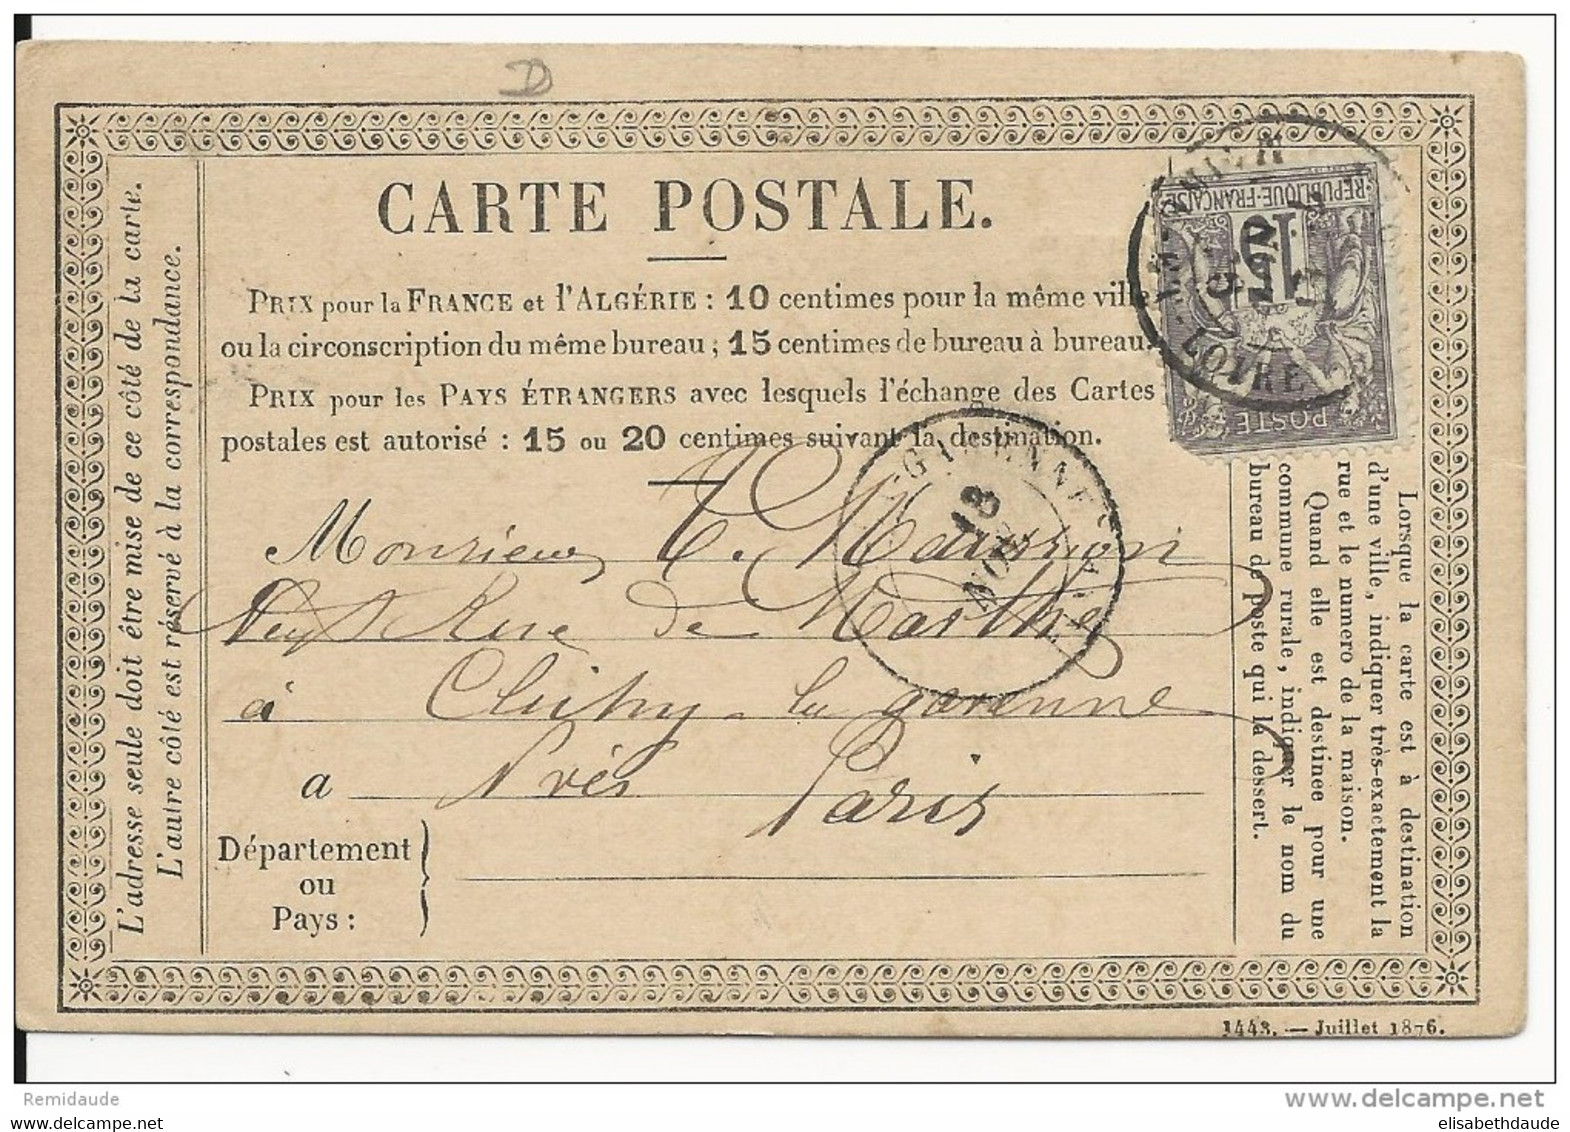 D
CARTE POSTALE.
PRIX pour la FRANCE et l'ALGÉRIE : 10 centimes pour la même ville
ou la circonscription du même bureau ; 15 centimes de bureau à bureau.
PRIX pour les PAYS ÉTRANGERS avec lesquels l'échange des Cartes
postales est autorisé : 15 ou 20 centimes suivant la destination.
Monsieur
Rue de
à Clichy la garenne
a Près Paris
Département
ou
Pays :
L'adresse seule doit être mise de ce côté de la carte.
L'autre côté est réservé à la correspondance.
Lorsque la carte est à destination
d'une ville, indiquer très-exactement la
rue et le numero de la maison.
Quand elle est destinée pour une
commune rurale, indiquer le nom du
bureau de poste qui la dessert.
REPUBLIQUE-FRANÇAISE
15
POSTE
LOIRE
18
NOV
1443. — Juillet 1876.
Remidaude
www.delcampe.net
www.delcampe.net
elisabethdaude